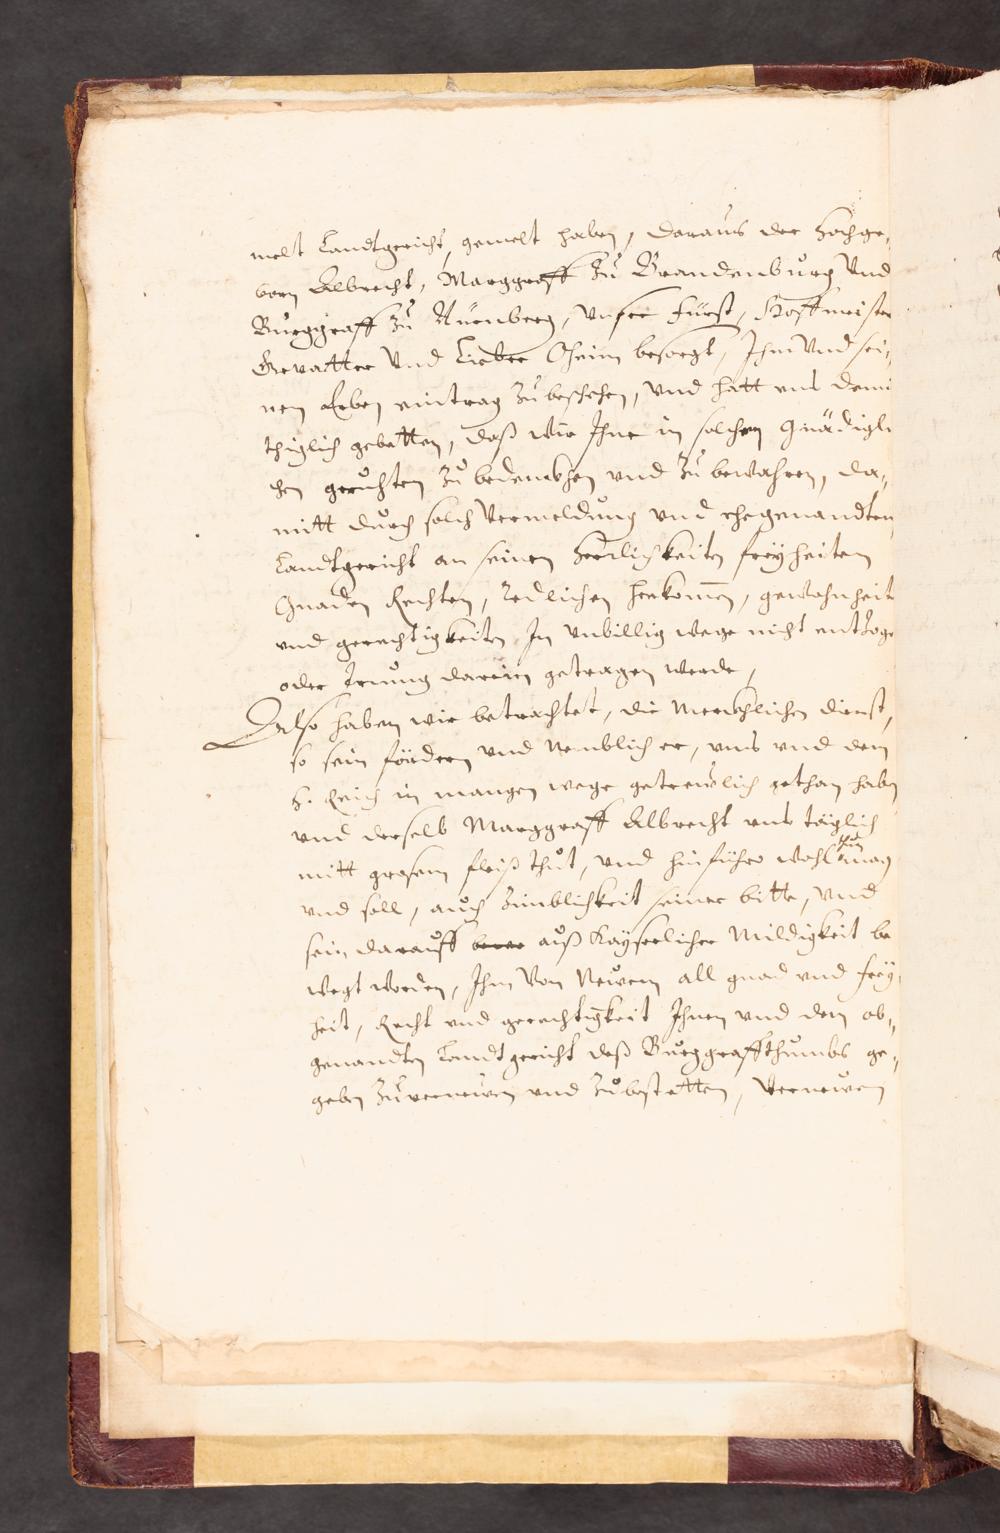 melt Landtgericht, gemelt haben, daraus der Hochge,
born Albrecht, Marggraff Zu Brandenburg Und
Burggraff Zu Nürnberg, Unser Fürst, Hoffmeister
Gevatter Und Lieber Oheim besorgt, Ihm Und sei,
nen Erben eintrag Zu beschehen, Und hatt uns demü
thiglich gebetten, daß wir Ihne in solchen Gnädigli
chen geruhten Zu bedenckhen und Zu bewahren, da,
mitt durch solch Vermeldung und ehegenandten
Landtgericht an seinen Herrlichkeiten freyheiten
Gnaden Rechten, Redlichen herkommen, gewohnheit
und gerechtigkeiten In Unbillig wege nicht entzoge
oder Irrung darein getragen werde,
Also haben wir betrachtet, die Merckhlichen dienst,
so sein fördern und Nemblich er, uns und dem
H. Reich in mangen wege getreulich gethan haben
und derselb Marggraff Albrecht uns täglich
mitt grosem fleiß thut, und hinführo wohl thun mag
und soll, auch Zimblichkeit seiner bitte, Und
sein darauff auß Kayserlicher Mildigkeit be
wegt worden, Ihm Von Newem all gnad und frey,
heit, Recht und gerechtigkeit Ihnen und dem ob,
genandten Landtgericht deß Burggraffthumbs ge,
geben Zuvernewen und Zubestetten, Vernewen